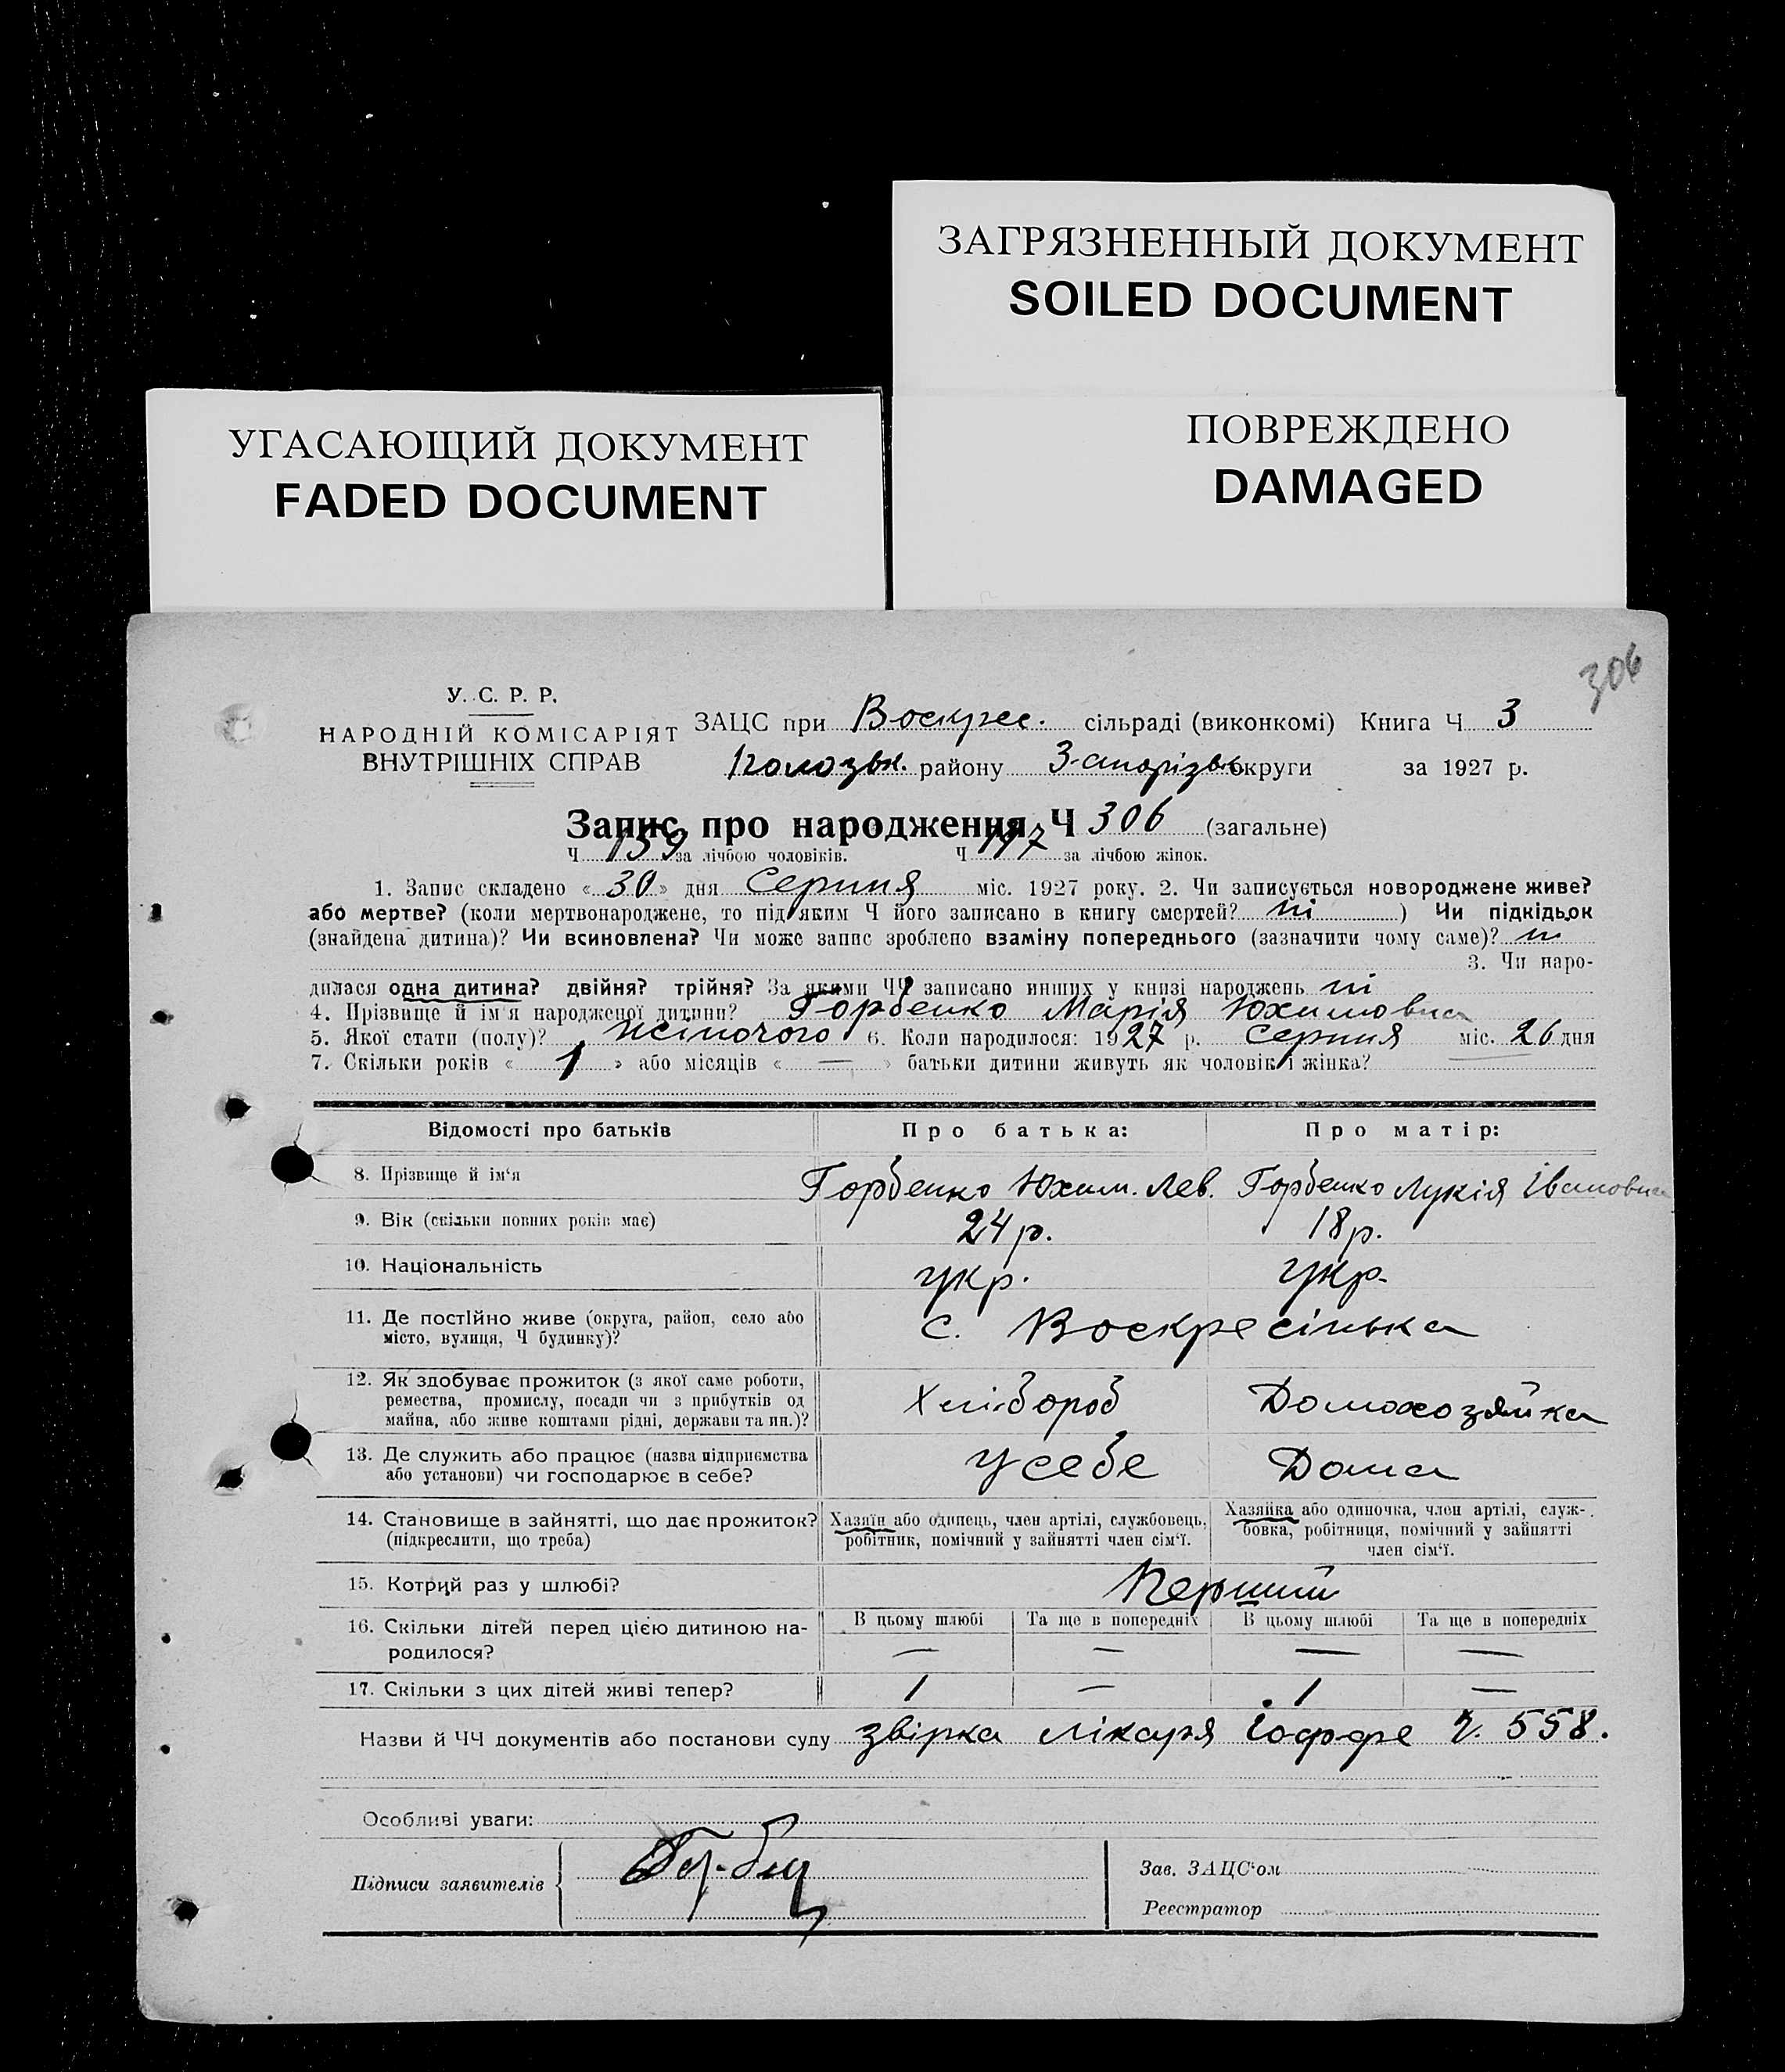 ЗАГРЯЗНЕННЫЙ ДОКУМЕНТ
SOILED DOCUMENT
УГАСАЮЩИЙ ДОКУМЕНТ
FADED DOCUMENT
ПОВРЕЖДЕНО
DAMAGED
306
У. С. Р. Р.
НАРОДНІЙ КОМІСАРІЯТ
ВНУТРІШНІХ СПРАВ
ЗАЦС при Воскрес. сільраді (виконкомі) Книга Ч 3
району З-апорізьк. округи за 1927 р.
Запис про народження Ч 306 (загальне)
Ч 159 за лічбою чоловіків. Ч 147 за лічбою жінок.
1. Запис складено «30» дня Серпня міс. 1927 року. 2. Чи записується новороджене живе?
або мертве? (коли мертвонароджене, то під яким Ч його записано в книгу смертей? ні) Чи підкідьок
(знайдена дитина)? Чи всиновлена? Чи може запис зроблено взаміну попереднього (зазначити чому саме)? ні
3. Чи наро-
дилася одна дитина? двійня? трійня? За якими ЧЧ записано инших у книзі народжень ні
4. Прізвище й ім'я народженої дитини? Горбенко Марія Юхимовна
5. Якої стати (полу)? жіночого 6. Коли народилося: 1927 р. серпня міс. 26 дня
7. Скільки років «1» або місяців «—» батьки дитини живуть як чоловік і жінка?
Відомості про батьків Про батька: Про матір:
8. Прізвище й ім'я Горбенко Юхим. Лев. Горбенко Лукія Івановна
9. Вік (скільки повних років має) 24 р. 18 р.
10. Національність укр. укр.
11. Де постійно живе (округа, район, село або
місто, вулиця, Ч будинку)? с. Воскресінька
12. Як здобуває прожиток (з якої саме роботи,
ремества, промислу, посади чи з прибутків од
майна, або живе коштами рідні, держави та ин.)? Хлібороб Домохозяйка
13. Де служить або працює (назва підприємства
або установи) чи господарює в себе? У себе Дома
14. Становище в зайнятті, що дає прожиток?
(підкреслити, що треба)
Хазяїн або одинець, член артілі, службовець,
робітник, помічний у зайнятті член сім'ї.
Хазяйка або одиночка, член артілі, служ-
бовка, робітниця, помічний у зайнятті
член сім'ї.
15. Котрий раз у шлюбі? Перший
16. Скільки дітей перед цією дитиною на-
родилося?
В цьому шлюбі Та ще в попередніх В цьому шлюбі Та ще в попередніх
— — — —
17. Скільки з цих дітей живі тепер? 1 — 1 —
Назви й ЧЧ документів або постанови суду звірка лікаря Іоффе Ч. 558.
Особливі уваги:
Підписи заявителів
Зав. ЗАЦС'ом
Реєстратор